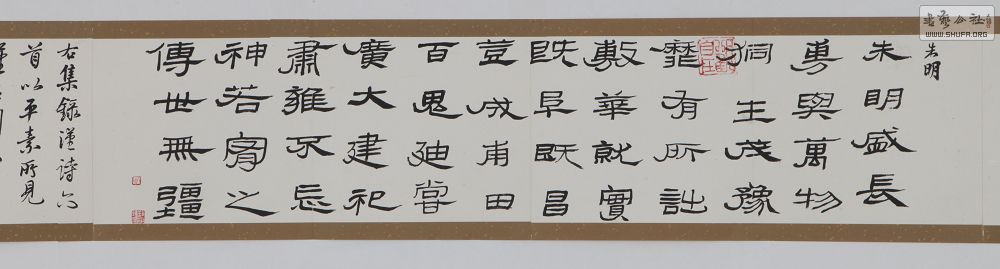 書藝公社
WWW.SHUFA.ORG
朱明
朱明盛長
旉與萬物
桐生茂豫
靡有所詘
敷華就實
既阜既昌
登成甫田
百鬼迪嘗
廣大建祀
肅雍不忘
神若宥之
傳世無疆
右集錄漢詩六
首以平素所見